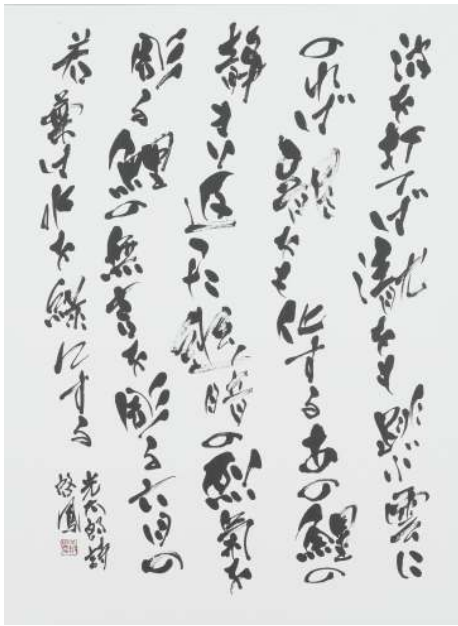 波を打てば瀧をも跳ぶ雲に
のればをも化するあの鯉の
静まり返った暗の烈氣を
彫る鯉の無言を彫る六月の
若葉は水を緑にする
光太郎詩